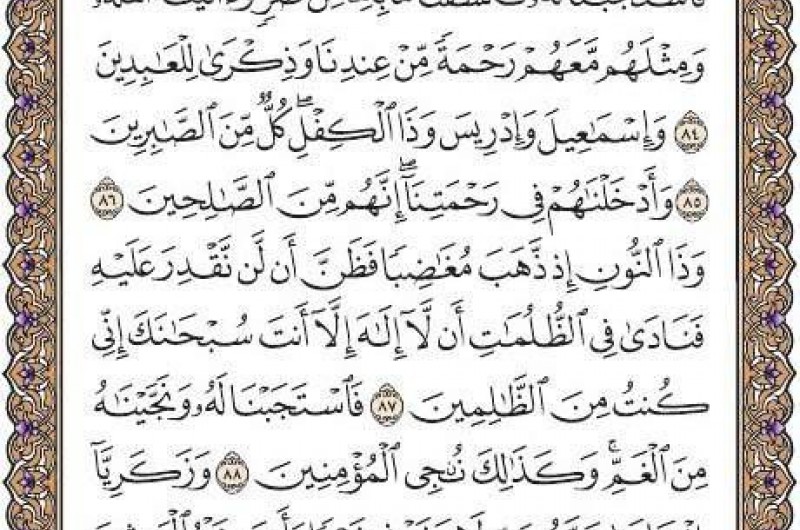 وَمِثْلَهُم مَّعَهُمْ رَحْمَةً مِّنْ عِندِنَا وَذِكْرَىٰ لِلْعَابِدِينَ
٨٤ وَإِسْمَاعِيلَ وَإِدْرِيسَ وَذَا الْكِفْلِ ۖ كُلٌّ مِّنَ الصَّابِرِينَ
٨٥ وَأَدْخَلْنَاهُمْ فِي رَحْمَتِنَا ۖ إِنَّهُم مِّنَ الصَّالِحِينَ ٨٦
وَذَا النُّونِ إِذ ذَّهَبَ مُغَاضِبًا فَظَنَّ أَن لَّن نَّقْدِرَ عَلَيْهِ
فَنَادَىٰ فِي الظُّلُمَاتِ أَن لَّا إِلَٰهَ إِلَّا أَنتَ سُبْحَانَكَ إِنِّي
كُنتُ مِنَ الظَّالِمِينَ ٨٧ فَاسْتَجَبْنَا لَهُ وَنَجَّيْنَاهُ
مِنَ الْغَمِّ ۚ وَكَذَٰلِكَ نُنجِي الْمُؤْمِنِينَ ٨٨ وَزَكَرِيَّا